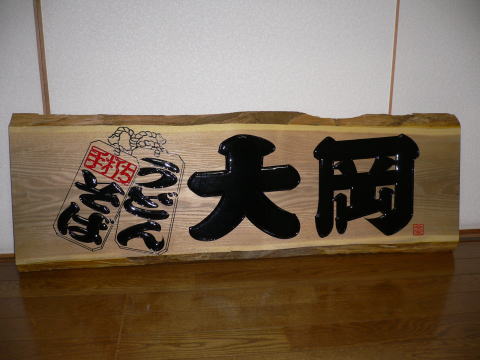 手打ち
うどん
そば
大岡